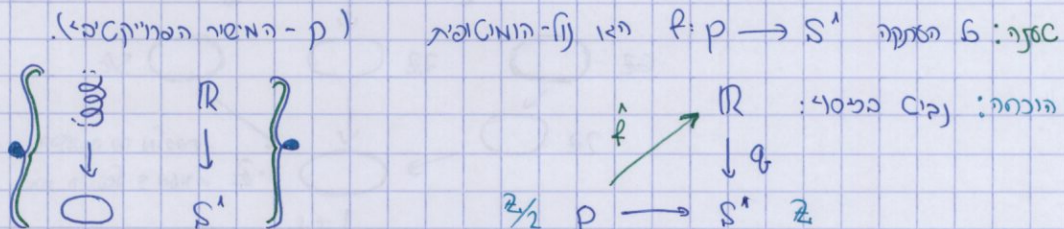 טענה: כל העתקה f: P → S¹ היא נול-הומוטופית (P - המישור הפרוייקטיבי).
הוכחה: נביט בכיסוי:
ℝ ℝ
f̂ q
S¹ ℤ/2 P → S¹ ℤ